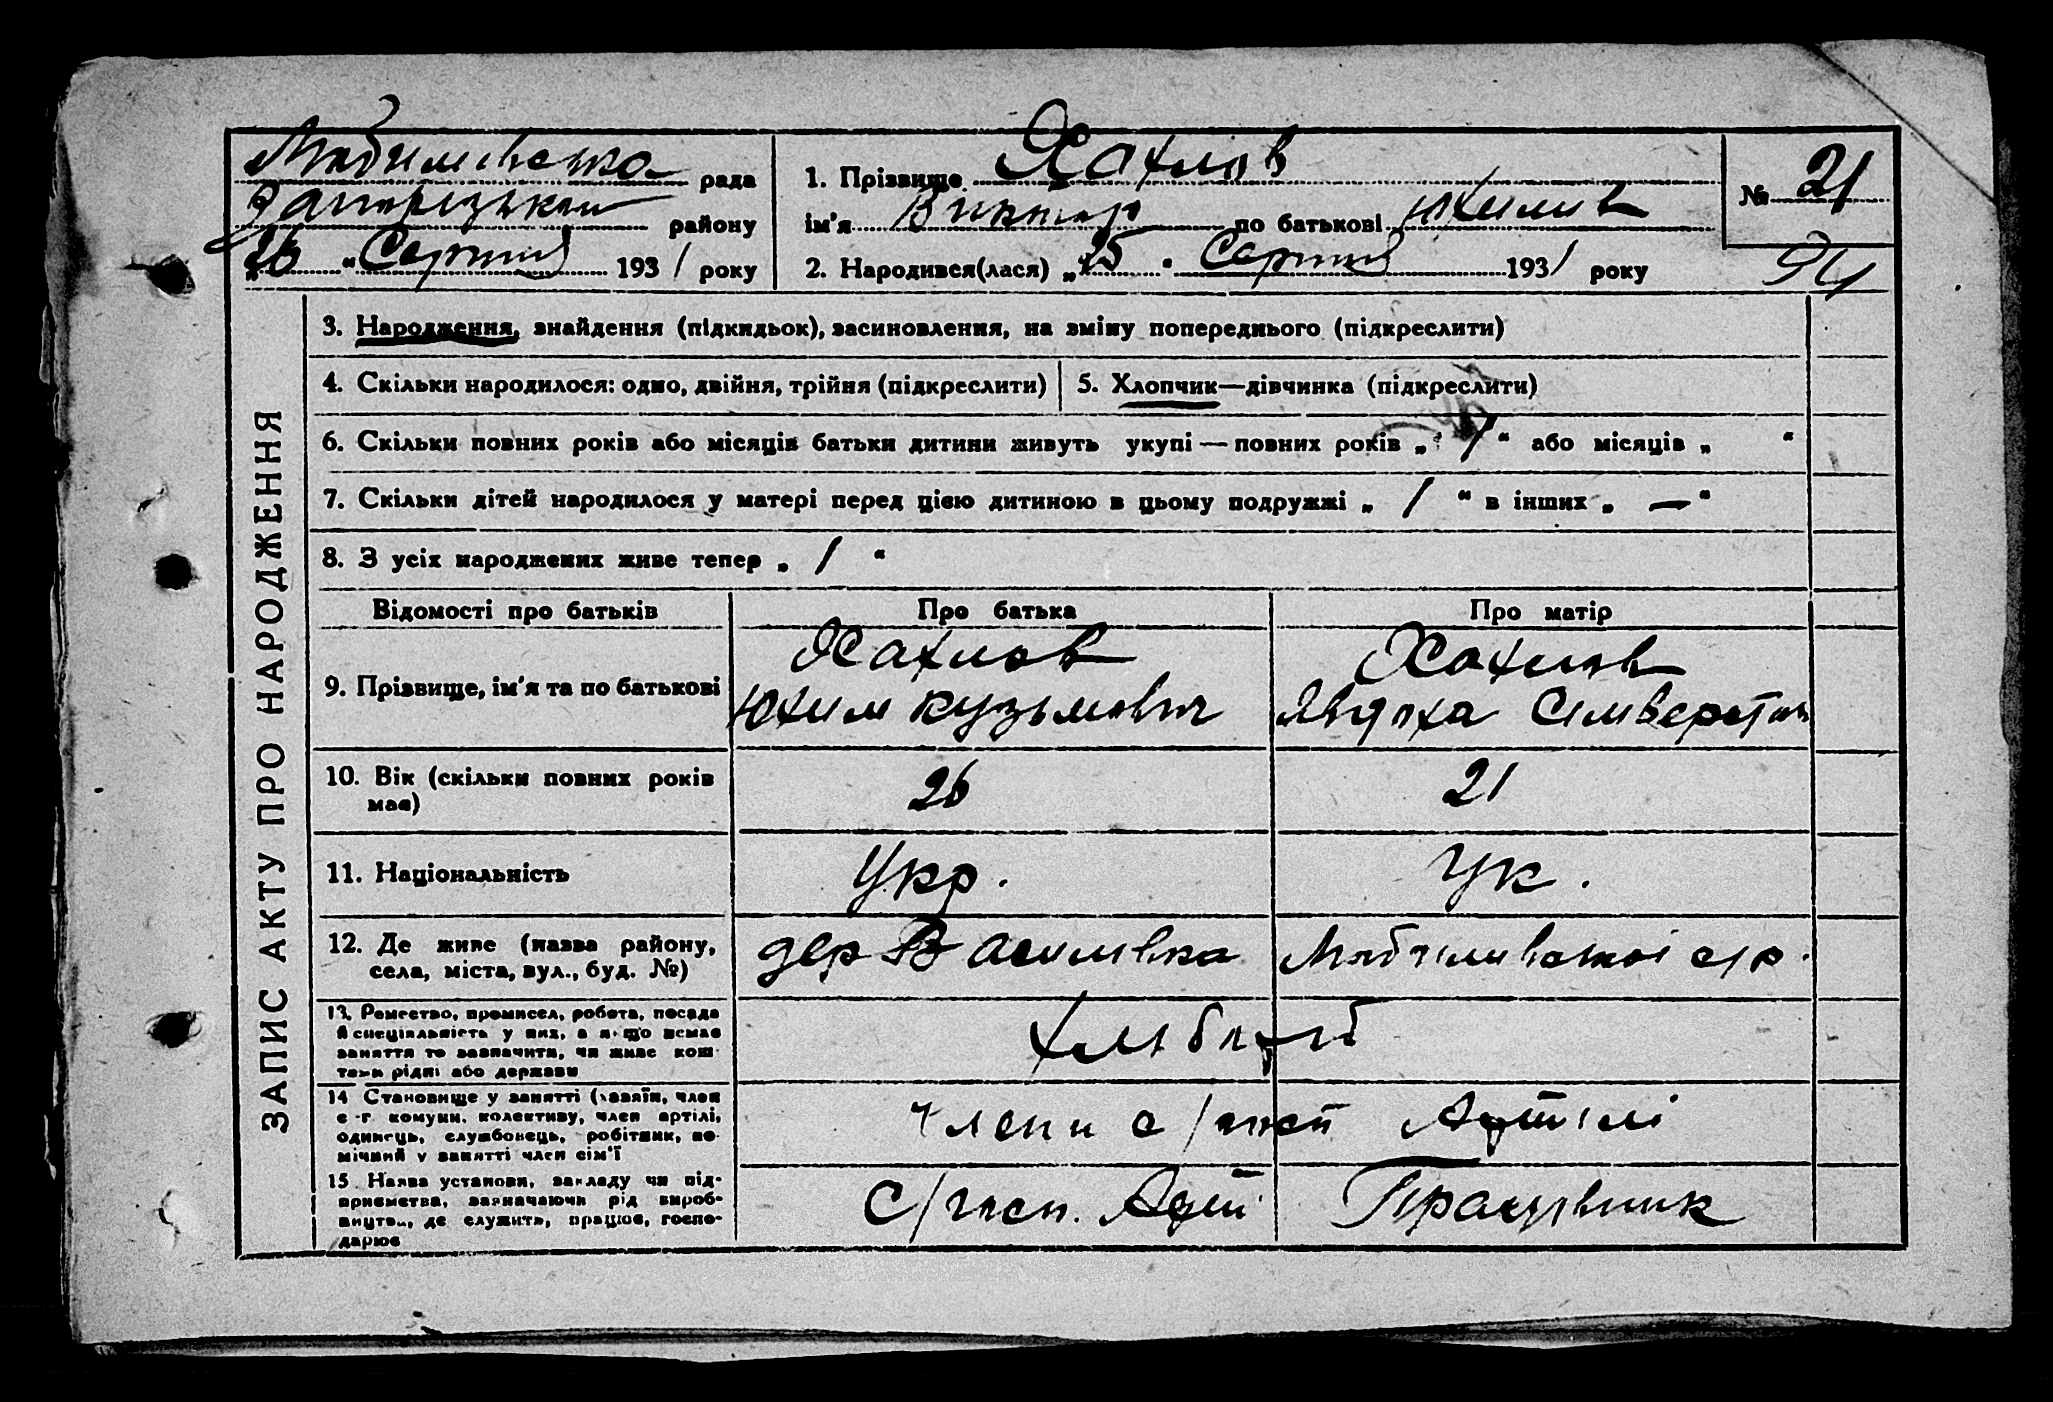 Любимівська рада
Запорізького району
„26“ Серпня 1931 року
1. Прізвище Хахлов
ім'я Виктор по батькові Юхимів
2. Народився(лася) „25“ Серпня 1931 року
№ 21
94
ЗАПИС АКТУ ПРО НАРОДЖЕННЯ
3. Народження, знайдення (підкидьок), засиновлення, на зміну попереднього (підкреслити)
4. Скільки народилося: одно, двійня, трійня (підкреслити)
5. Хлопчик—дівчинка (підкреслити)
6. Скільки повних років або місяців батьки дитини живуть укупі — повних років „ “ або місяців „ “
7. Скільки дітей народилося у матері перед цією дитиною в цьому подружжі „ 1 “ в інших „ — “
8. З усіх народжених живе тепер „ 1 “
Відомості про батьків
Про батька
Про матір
9. Прізвище, ім'я та по батькові
Хахлов
Юхим Кузьмович
Хахлов
Явдоха
10. Вік (скільки повних років
має)
26
21
11. Національність
Укр.
Ук.
12. Де живе (назва району,
села, міста, вул., буд. №)
дер Василівка
Любимівської с/р.
13. Ремество, промисел, робота, посада
й спеціяльність у них, а якщо немає
заняття то зазначити, чи живе кош-
тами рідні або держави
хлібороб
14 Становище у занятті (хазяїн, член
с.-г. комуни, колективу, член артілі,
одинець, службовець, робітник, по-
мічний у занятті член сім'ї
члени с/госп Артілі
15 Назва установи, закладу чи під-
приємства, зазначаючи рід вироб-
ництва, де служить, працює, госпо-
дарює
с/госп. Арт
Працівник